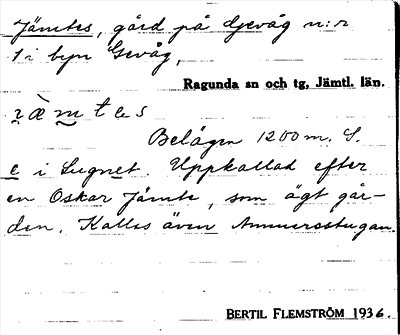 Jämtes, gård på Gjevåg n:r
1 i byn Gevåg,
Ragunda sn och tg, Jämtl. län.
Belägen 1200 m. S.
e i Lugnet. Uppkallad efter
en Oskar Jämte, som ägt går-
den. Kallas även Ammerostugan.
BERTIL FLEMSTRÖM 1936.